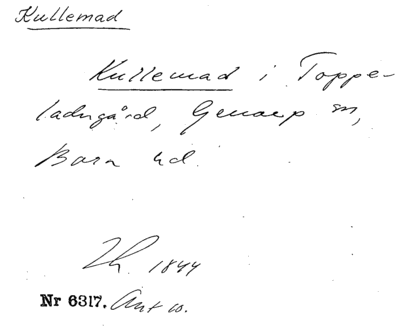 Kullemad
Kullemad i Toppe-
ladugård, Genarp sn,
Bara hd.
1844
Nr 6317. Ant